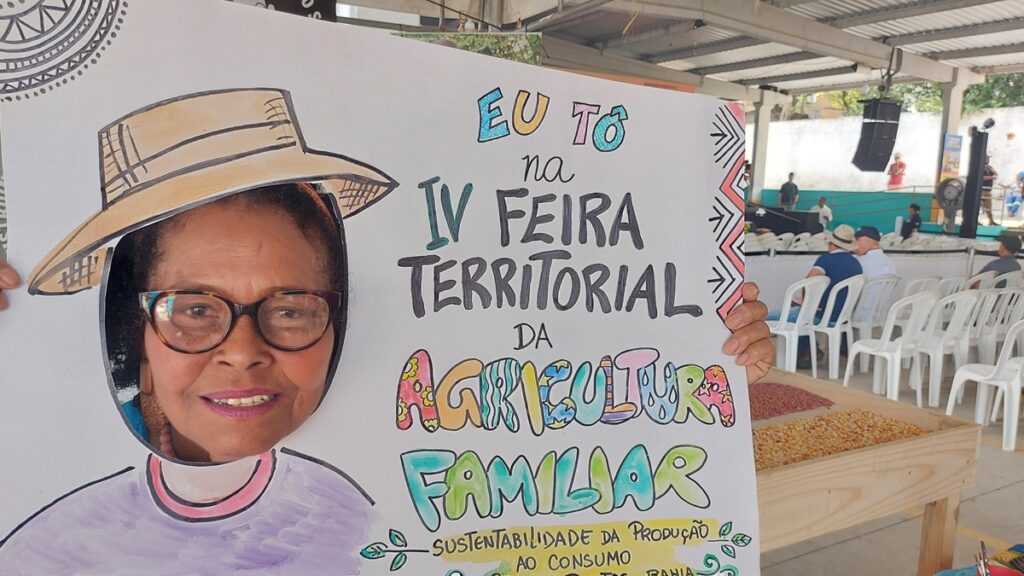 EU TÔ
na
IV FEIRA
TERRITORIAL
DA
AGRICULTURA
FAMILIAR
SUSTENTABILIDADE DA PRODUÇÃO
AO CONSUMO
BAHIA